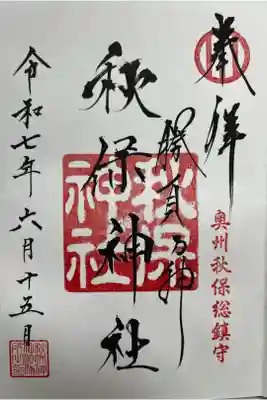 奉拝
奥州秋保総鎮守
勝負乃神
秋保神社
秋保神社
令和七年六月十五日